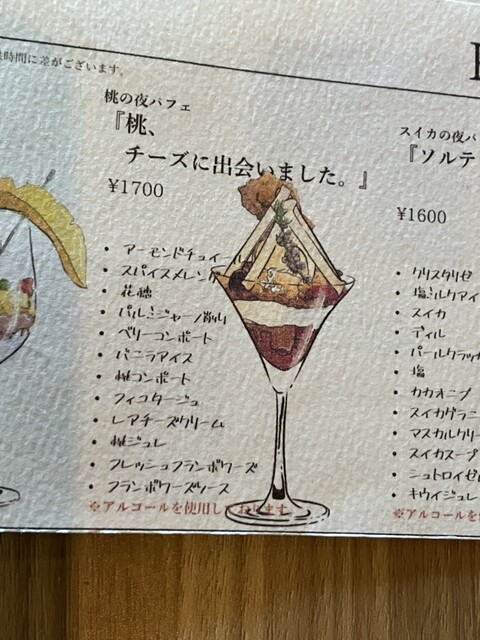 時間に差がございます。
桃の夜パフェ
『桃、
チーズに出会いました。』
¥1700
• アーモンドチュイール
• スパイスメレンゲ
• 花穂
• パルミジャーノ削り
• ベリーコンポート
• バニラアイス
• 桃コンポート
• フィユタージュ
• レアチーズクリーム
• 桃ジュレ
• フレッシュフランボワーズ
• フランボワーズソース
※アルコールを使用しております
スイカの夜パ
『ソルテ
¥1600
• クリスタリゼ
• 塩ミルクアイ
• スイカ
• ディル
• パールクラッカ
• 塩
• カカオニブ
• スイカグラニ
• マスカルクリー
• スイカスープ
• シュトロイゼル
• キウイジュレ
※アルコールを